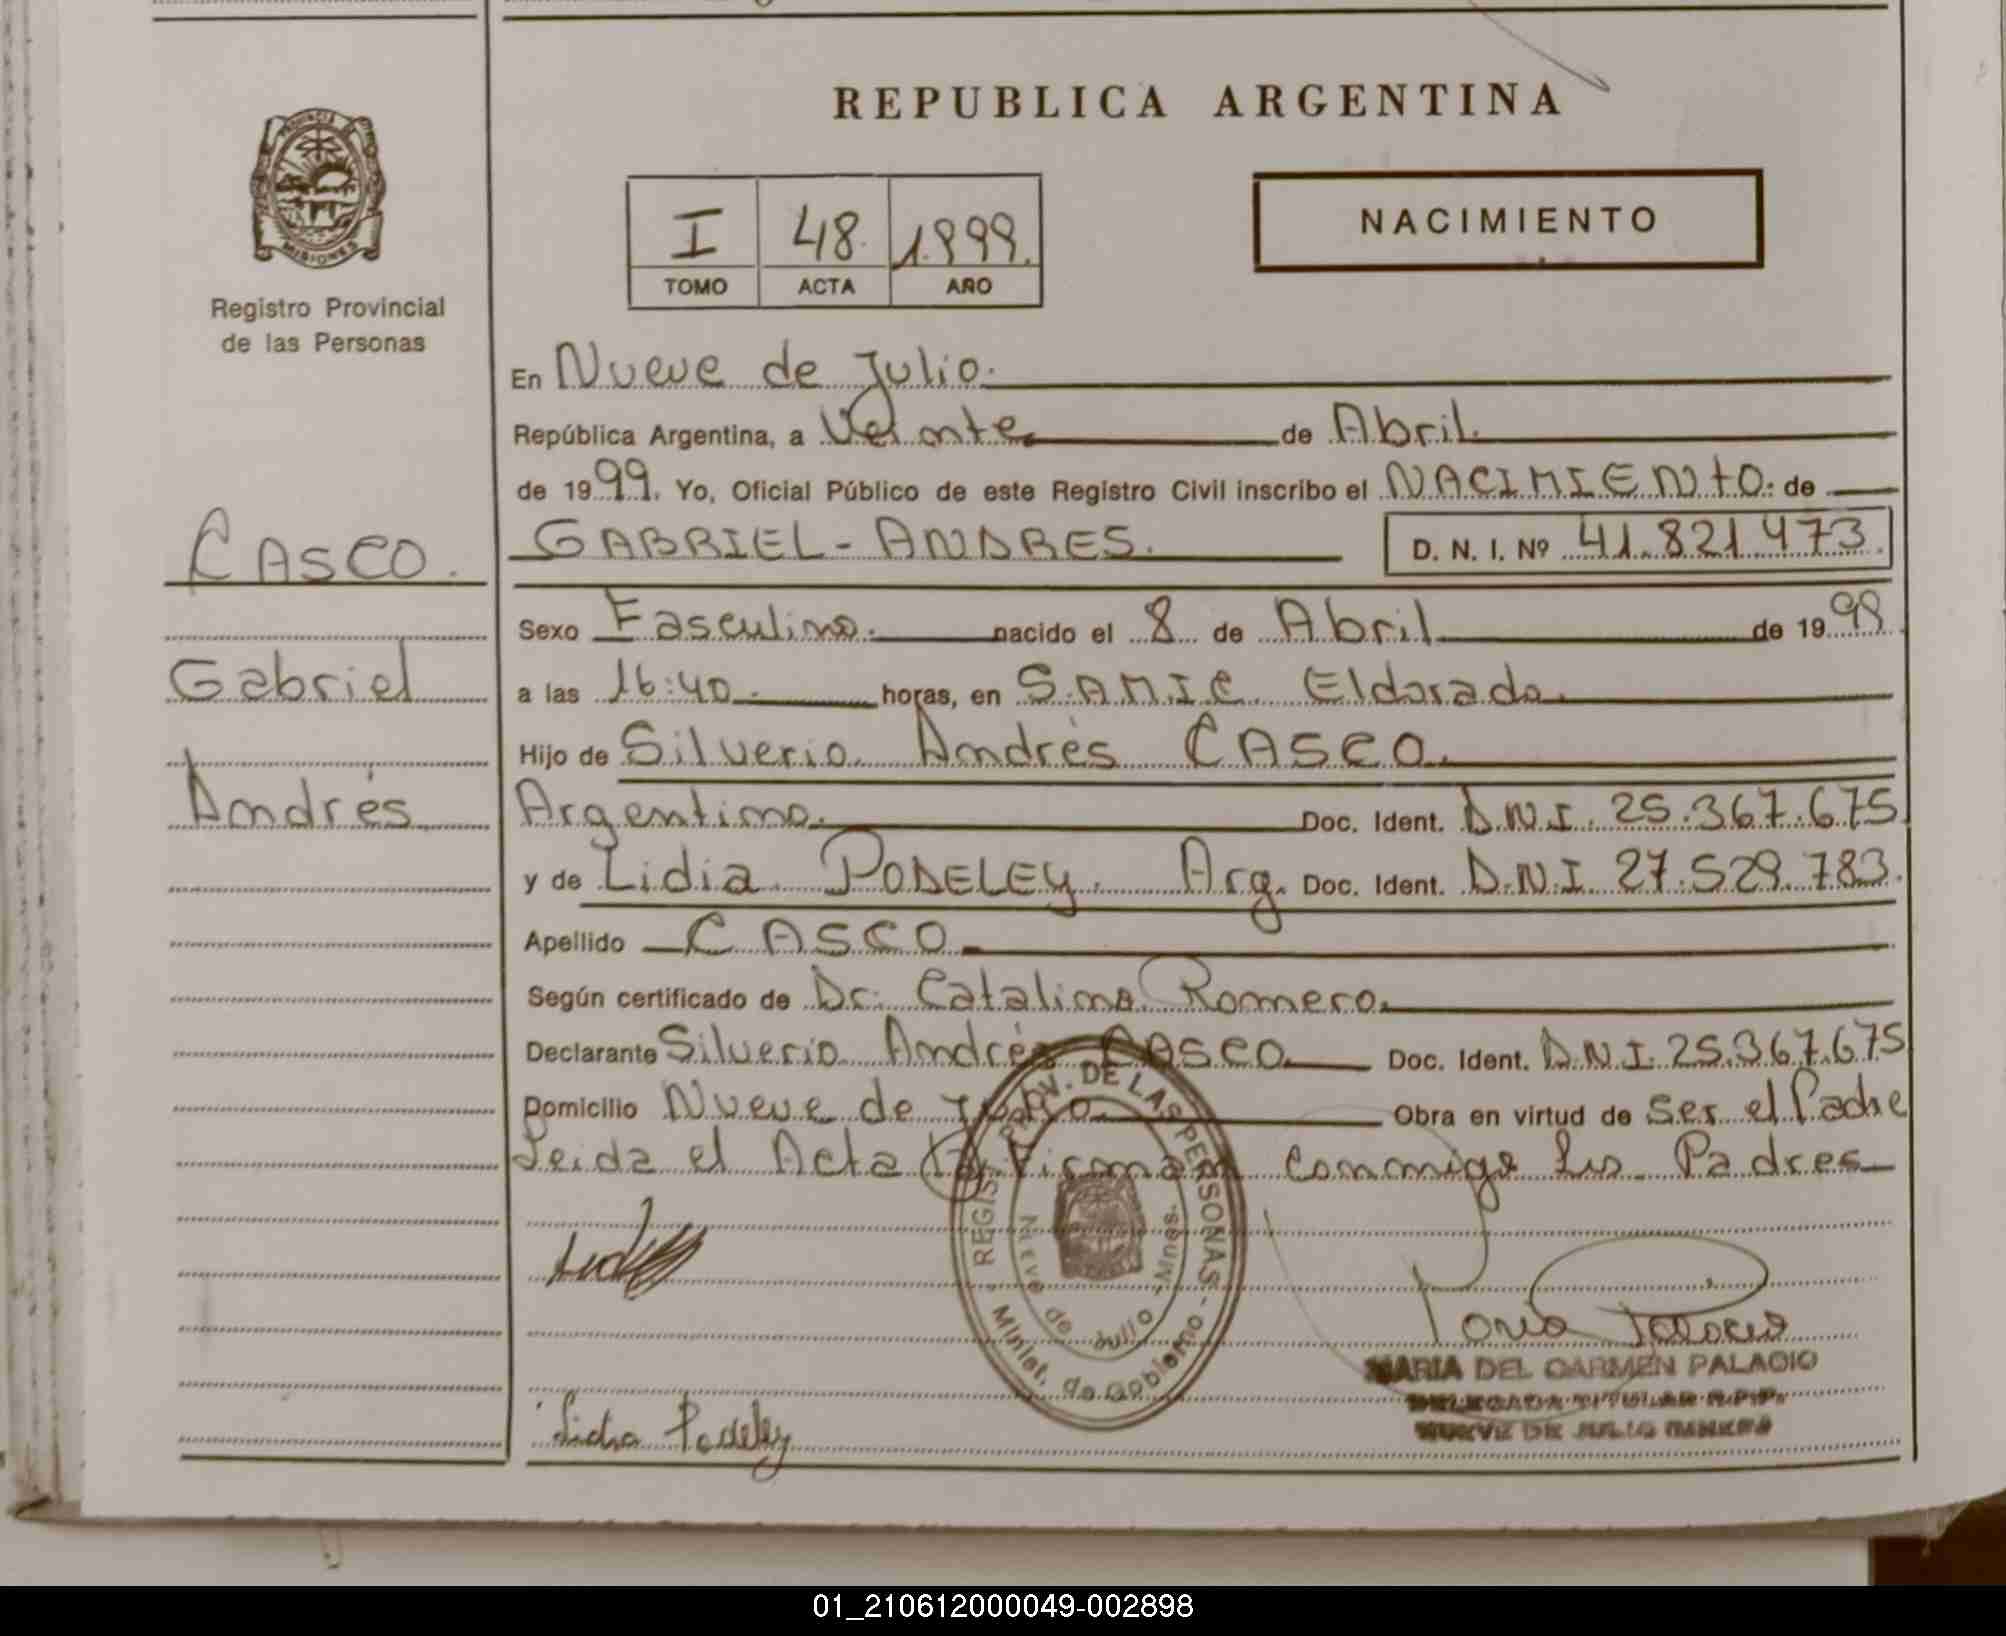 REPUBLICA ARGENTINA
PROVINCIA DE
MISIONES
Registro Provincial
de las Personas
I 48 1.999.
TOMO ACTA AÑO
NACIMIENTO
En Nueve de Julio.
República Argentina, a Veinte de Abril.
de 1999. Yo, Oficial Público de este Registro Civil inscribo el NACIMIENTO. de
CASCO.
GABRIEL-ANDRES. D. N. I. Nº 41.821.473.
Sexo Masculino. nacido el 8 de Abril de 1999
Gabriel
a las 16:40. horas, en S.A.M.I.C. Eldorado.
Hijo de Silverio Andrés CASCO.
Andrés
Argentino. Doc. Ident. D.N.I. 25.367.675
y de Lidia PODELEY. Arg. Doc. Ident. D.N.I. 27.529.783.
Apellido CASCO
Según certificado de Dr. Catalina Romero.
Declarante Silverio Andrés CASCO Doc. Ident. D.N.I. 25.367.675
Domicilio Nueve de Julio Obra en virtud de ser el Padre
Leida el Acta la Firman conmigo los Padres
REGIST. PROV. DE LAS PERSONAS - Minist. de Gobierno -
Nueve de Julio - Mnes.
Maria Palacio
MARIA DEL CARMEN PALACIO
DELEGADA TITULAR R.P.P.
NUEVE DE JULIO MNES
Lidia Podeley
01_210612000049-002898